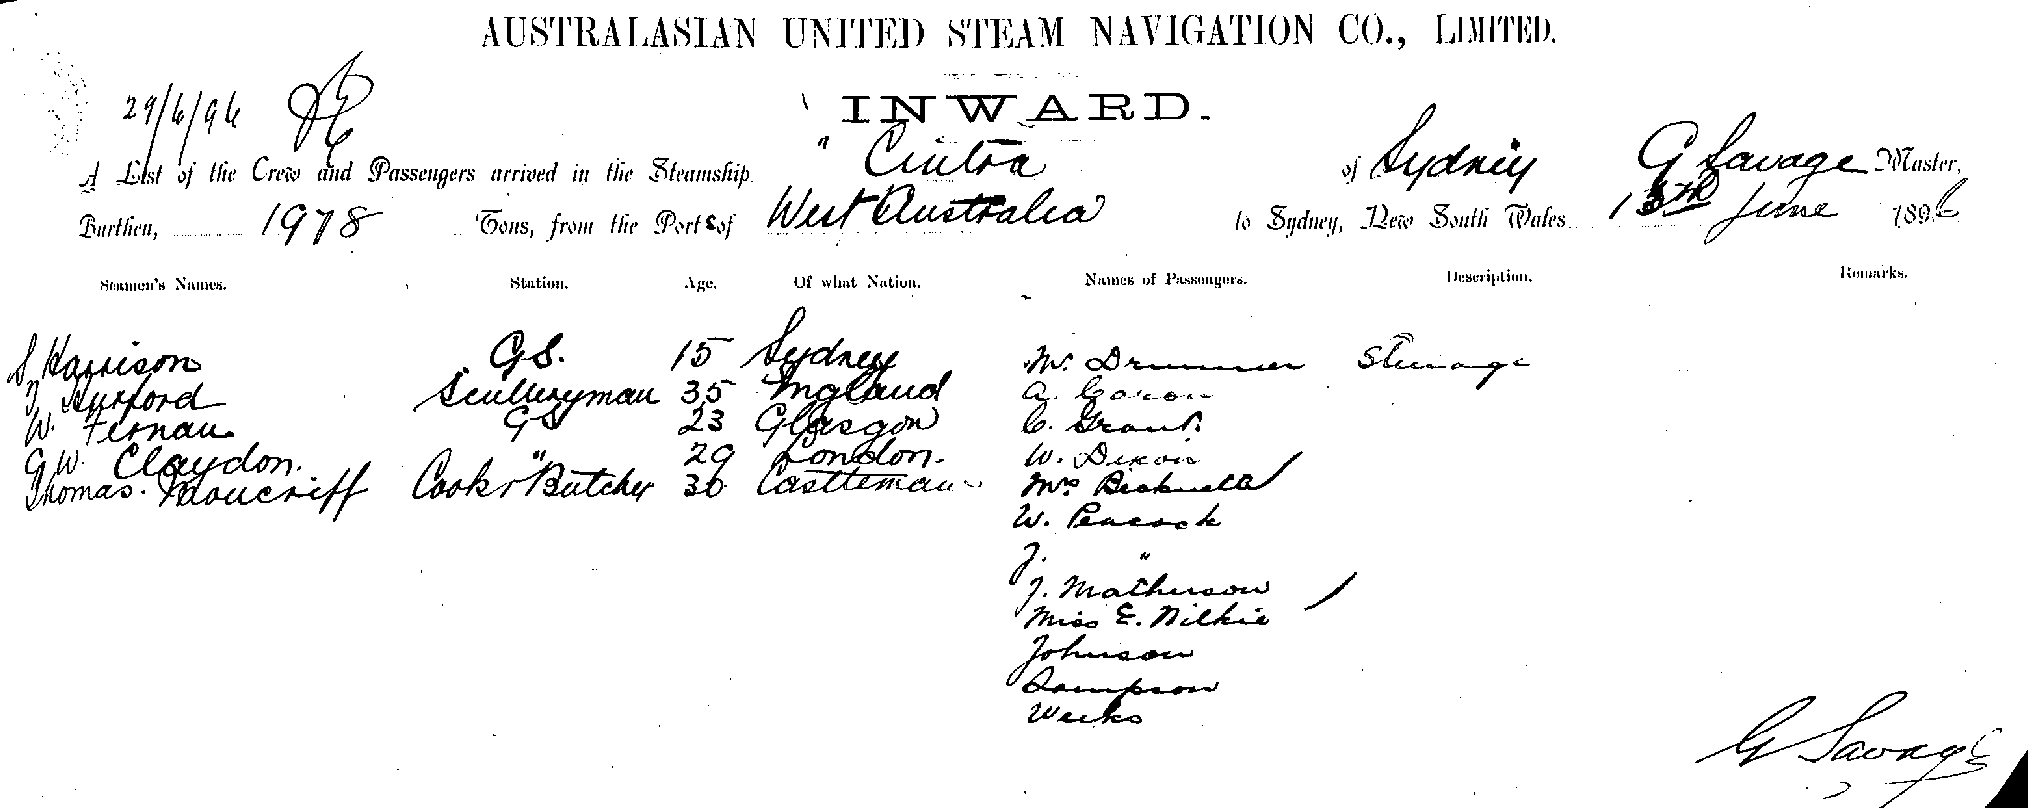 AUSTRALASIAN UNITED STEAM NAVIGATION CO., LIMITED.
29/6/96
INWARD.
A List of the Crew and Passengers arrived in the Steamship "Cintra of Sydney G Savage Master,
Burthen, 1978 Tons, from the Ports of West Australia to Sydney, New South Wales 13th June 1896
Seamen's Names. Station. Age. Of what Nation. Names of Passengers. Description. Remarks.
S Harrison GS. 15 Sydney Mr Drummer Steerage
Hurford Sculleryman 35 England A.
W. Fernau GS 23 Glasgow C. Grant
G W. Claydon. " 29 London. W. Dixon
Thomas. Moncriff Cooks Butcher 36 Castlemau Mrs Bicknell
W. Peacock
J. "
J. Matherson
Miss E. Wilkie
Johnson
Sampson
Weeks
G Savage